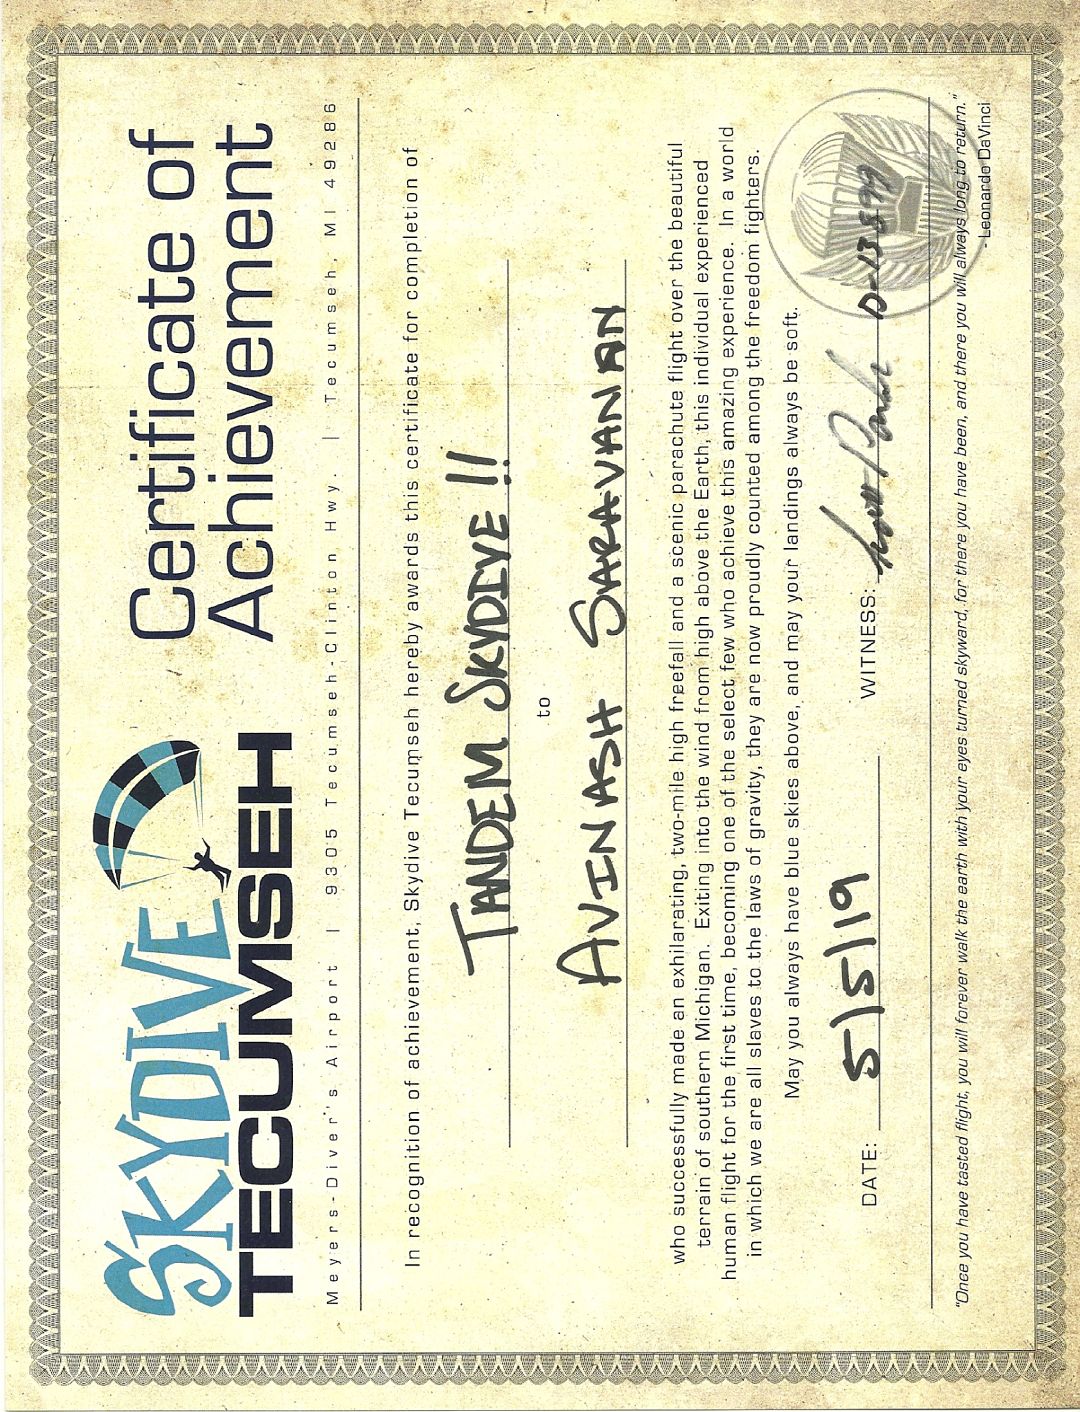 SKYDIVE
TECUMSEH
Certificate of
Achievement
Meyers-Diver's Airport | 9305 Tecumseh-Clinton Hwy. | Tecumseh, MI 49286
In recognition of achievement, Skydive Tecumseh hereby awards this certificate for completion of
TANDEM SKYDIVE!!
to
AVINASH SARAVANAN
who successfully made an exhilarating, two-mile high freefall and a scenic parachute flight over the beautiful
terrain of southern Michigan. Exiting into the wind from high above the Earth, this individual experienced
human flight for the first time, becoming one of the select few who achieve this amazing experience. In a world
in which we are all slaves to the laws of gravity, they are now proudly counted among the freedom fighters.
May you always have blue skies above, and may your landings always be soft.
DATE: 5/5/19 WITNESS: D-13899
"Once you have tasted flight, you will forever walk the earth with your eyes turned skyward, for there you have been, and there you will always long to return."
- Leonardo DaVinci